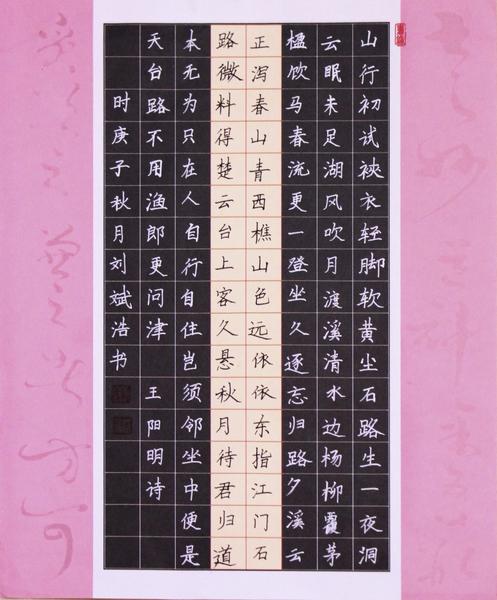 山行初试裌衣轻脚软黄尘石路生一夜洞
云眠未足湖风吹月渡溪清水边杨柳覆茅
楹饮马春流更一登坐久遂忘归路夕溪云
正泻春山青西樵山色远依依东指江门石
路微料得楚云台上客久悬秋月待君归道
本无为只在人自行自住岂须邻坐中便是
天台路不用渔郎更问津 王阳明诗
时庚子秋月刘斌浩书